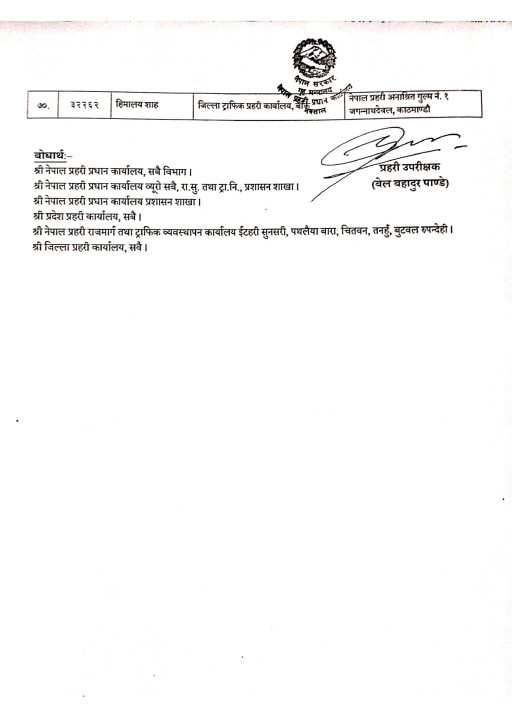 नेपाल सरकार
गृह मन्त्रालय
नेपाल प्रहरी प्रधान कार्यालय
नक्साल
७०. ३२२६२ हिमालय शाह जिल्ला ट्राफिक प्रहरी कार्यालय, बाँके नेपाल प्रहरी अनाश्रित गुल्म नं. १
जगन्नाथदेवल, काठमाण्डौ
बोधार्थ:–
श्री नेपाल प्रहरी प्रधान कार्यालय, सबै विभाग ।
श्री नेपाल प्रहरी प्रधान कार्यालय व्यूरो सबै, रा.सु. तथा ट्रा.नि., प्रशासन शाखा ।
श्री नेपाल प्रहरी प्रधान कार्यालय प्रशासन शाखा ।
श्री प्रदेश प्रहरी कार्यालय, सबै ।
श्री नेपाल प्रहरी राजमार्ग तथा ट्राफिक व्यवस्थापन कार्यालय ईटहरी सुनसरी, पथलैया बारा, चितवन, तनहुँ, बुटवल रुपन्देही ।
श्री जिल्ला प्रहरी कार्यालय, सबै ।
प्रहरी उपरीक्षक
(बेल बहादुर पाण्डे)